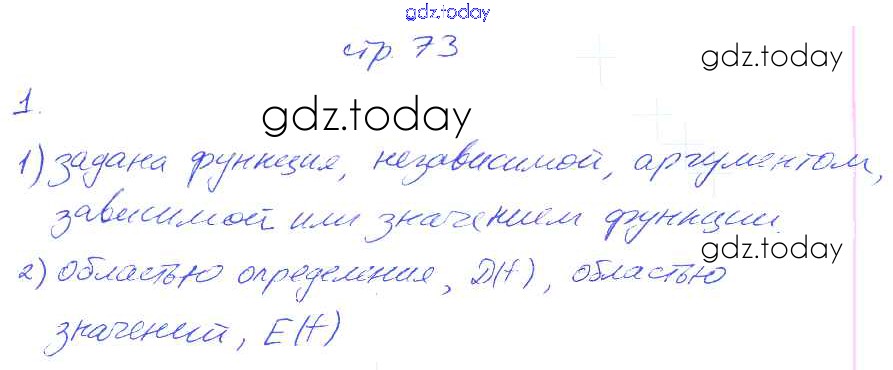 gdz.today
стр. 73
gdz.today
1.
gdz.today
1) задана функция, независимой, аргументом,
зависимой или значением функции.
gdz.today
2) областью определения, D(f), областью
значений, E(f)